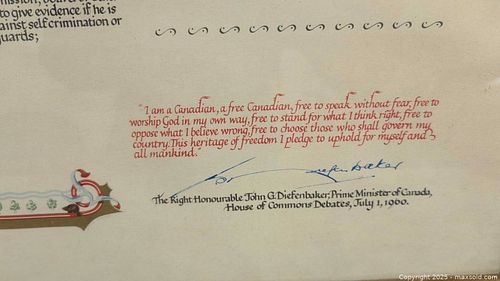 to give evidence if he is
ainst self crimination or
guards;
"I am a Canadian, a free Canadian, free to speak without fear, free to
worship God in my own way, free to stand for what I think right, free to
oppose what I believe wrong, free to choose those who shall govern my
country. This heritage of freedom I pledge to uphold for myself and
all mankind."
The Right Honourable John G. Diefenbaker, Prime Minister of Canada,
House of Commons Debates, July 1, 1960.
Copyright 2025 - maxsold.com